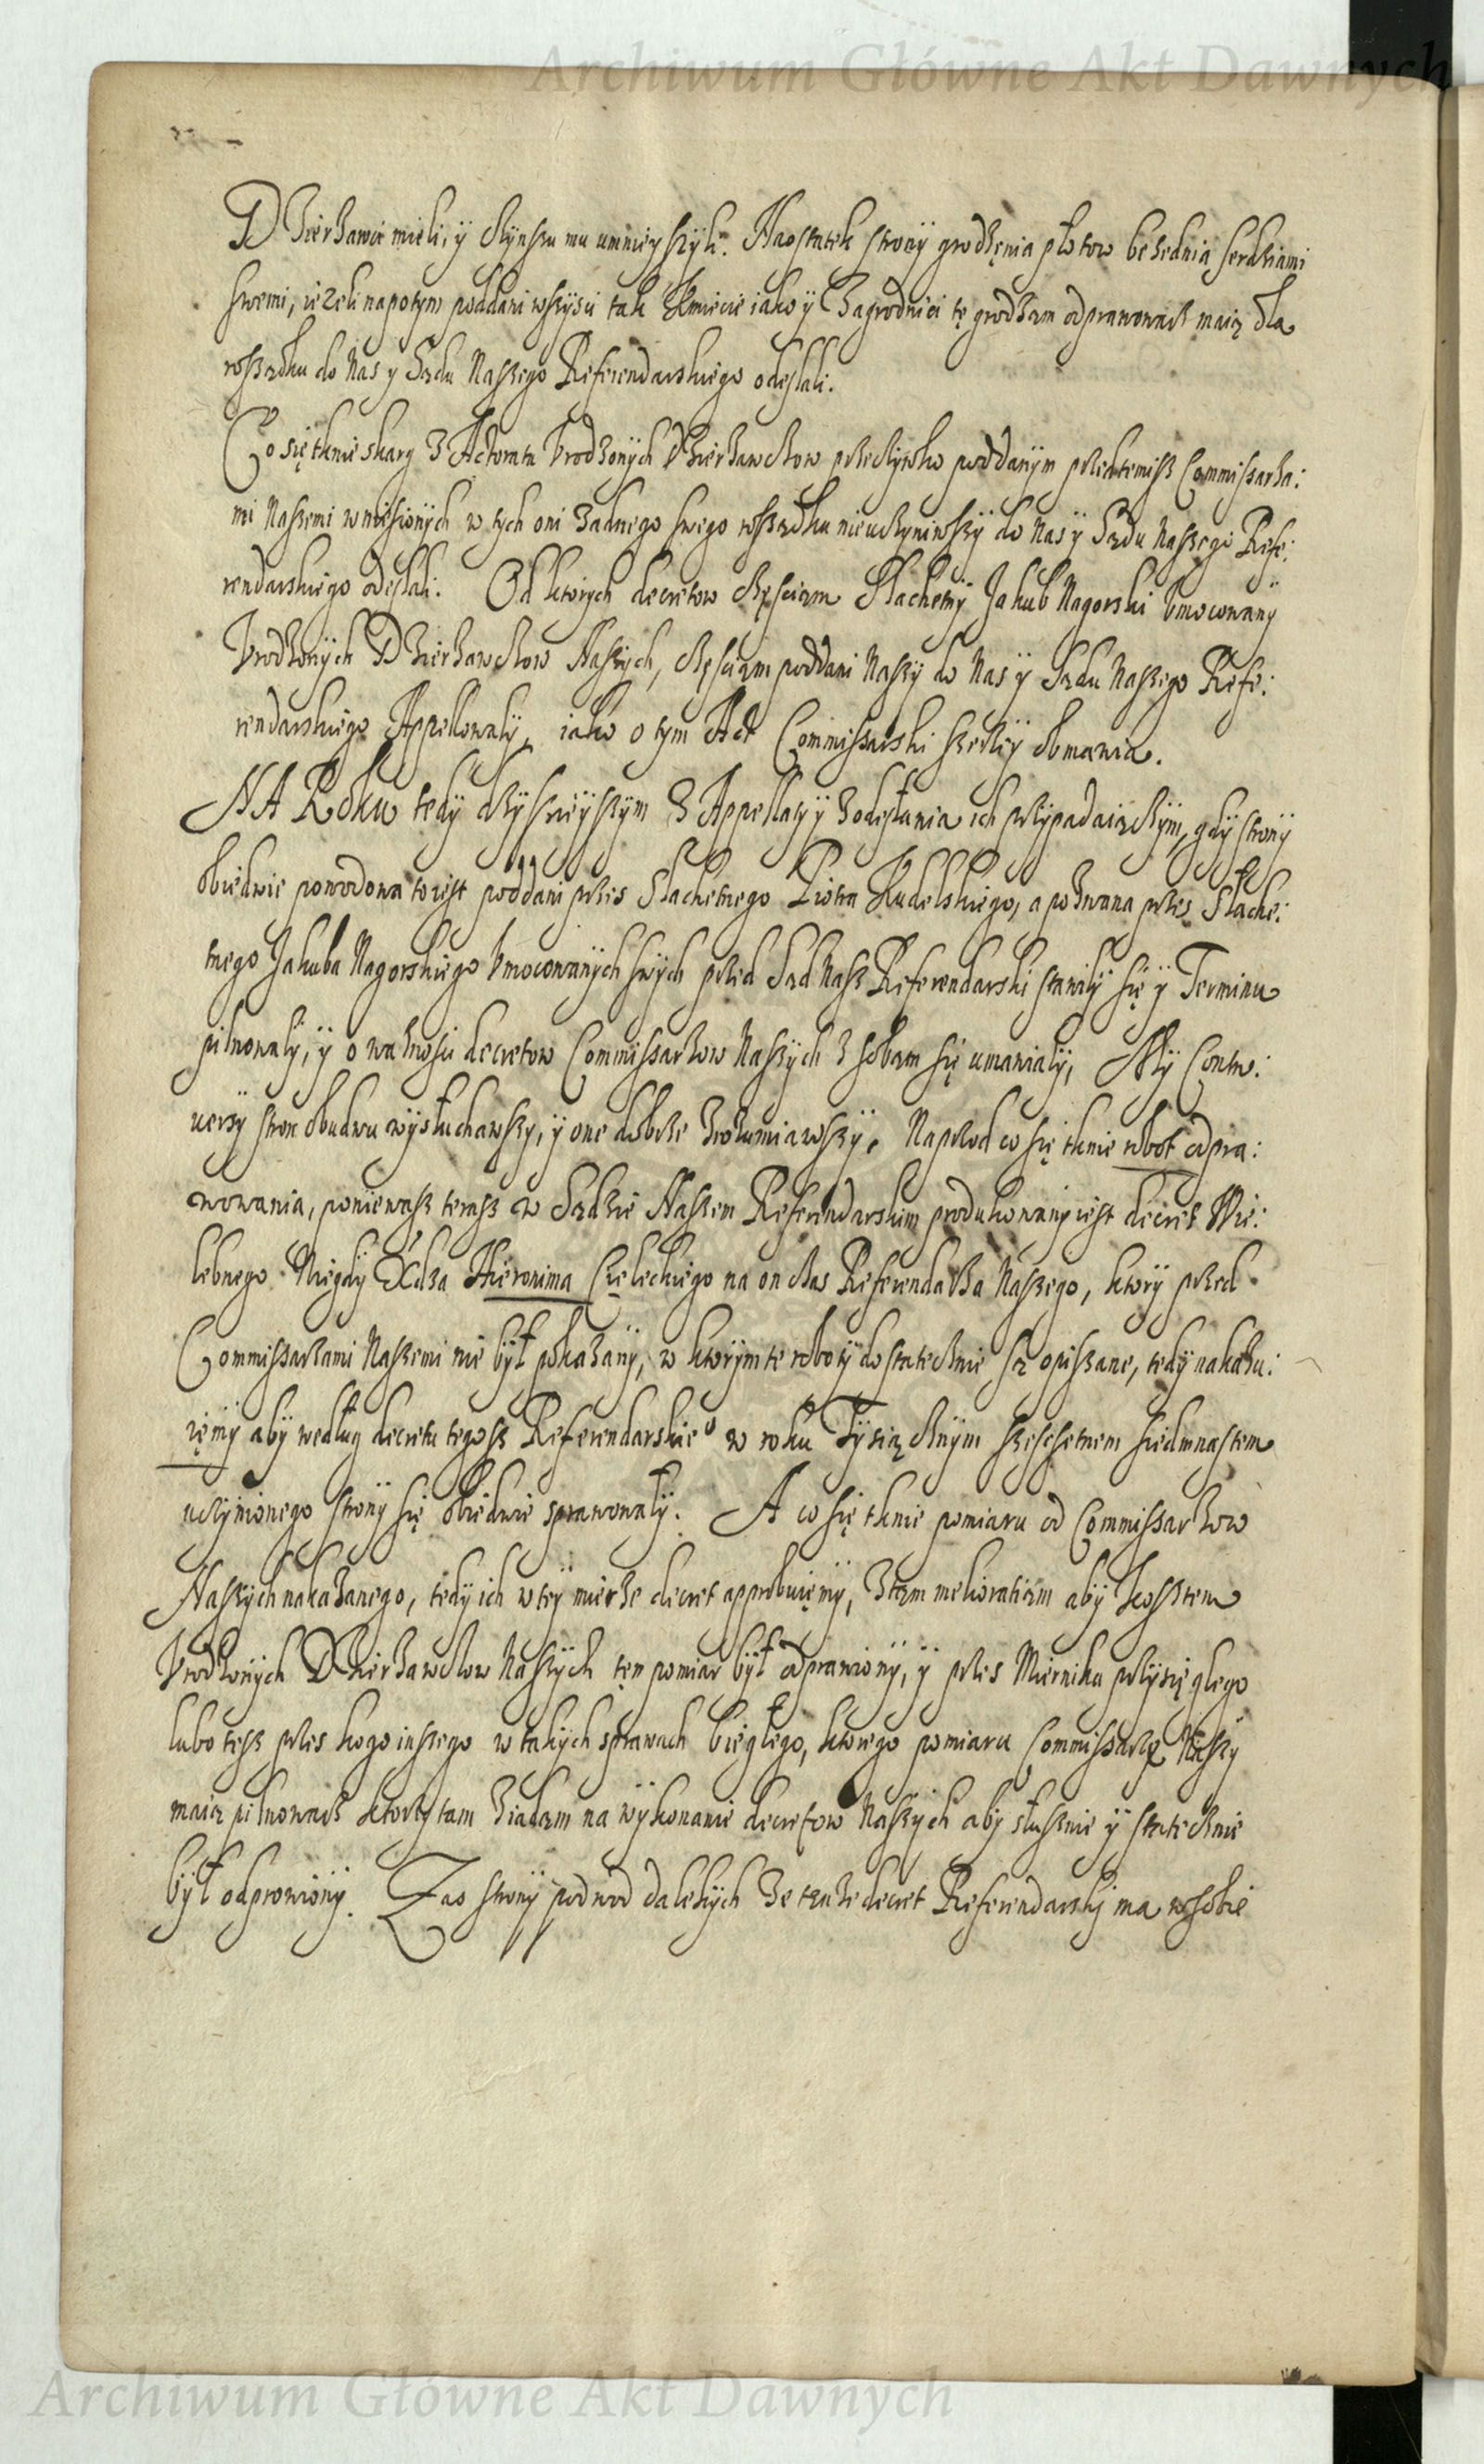 Archiwum Główne Akt Dawnych
Dzierżawcę mieli, ÿ czÿnszu mu umnieyszÿli. Naostatek stronÿ grodzęnia płotow
swemi, ieżeli napotym poddani wszÿsci tak Kmiecie iako ÿ Zagrodnici tę grodzam odprawowacz maią dla
rossądku do Nas y Sądu Naszego Referendarskiego odesłali.
Co się tknie skarg z Actoratu Vrodzonÿch Dzierżawczow przeciwko poddanÿm przedtemisz Commissarza:
mi Naszemi wniesionÿch w tych oni żadnego swego rossądku nieuczÿniwszÿ do Nas ÿ Sądu Naszego Refe:
rendarskiego odesłali. Od ktorÿch decretow częsciam Slachetnÿ Jakub Nagorski Vmocowanÿ
Vrodzonÿch Dzierżawczow Naszÿch, częsciam poddani Naszÿ do Nas ÿ Sądu Naszego Refe:
rendarskiego Appellowalÿ, iako o tym Act Commissarski szerzeÿ obmawia.
NA Roku tedÿ dzÿsieÿszÿm z Appellacÿÿ z odesłania ich przÿpadaiączÿm, gdÿ stronÿ
obiedwie powodowa to iest poddani przes Slachetnego Piotra Kudelskiego, a pozwana przes Slache:
tnego Jakuba Nagorskiego Vmocowanÿch swÿch przed Sąd Nasz Referendarski stawilÿ się ÿ Terminu
pilnowalÿ, ÿ o ważnosci decretow Commissarzow Naszÿch z sobam się umawialÿ, Mÿ Contro:
uersÿ stron obudwu wÿsłuchawszÿ, ÿ one dobrze zrozumiawszÿ. Naprzod co się tknie robot odpra:
wowania, ponieważ terasz w Sądzie Naszem Referendarskim produkowanÿ iest decret Wie:
lebnego Niegdÿ Xdza Hieronima Cieleckiego na on czas Referendarza Naszego, ktorÿ przed
Commissarzami Naszemi nie bÿł pokazanÿ, w ktorÿm te robotÿ dostatecznie są opissane, tedÿ nakazu:
ięmÿ abÿ według decretu tegosz Referendarskieo w roku Tÿsiącznÿm szescsetnem siedmnastem
uczÿnionego stronÿ się obiedwie sprawowalÿ. A co się tknie pomiaru od Commissarzow
Naszÿch nakazanego, tedÿ ich w teÿ mierze decret approbuięmÿ, z tam melioratiam abÿ kosztem
Vrodzonÿch Dzierżawczow Naszÿch tęn pomiar bÿł odprawionÿ, ÿ przes Miernika przÿsięglego
lubo tesz przes kogo inszego w takÿch sprawach biegłego, ktorego pomiaru Commissarze Naszÿ
maią pilnowacz ktorzÿ tam ziadam na wÿkonanie decretow Naszÿch abÿ słusznie ÿ statecznie
bÿł odprawionÿ. Zas stronÿ podwod dalekÿch że tenże decret Referendarskÿ ma w sobie
Archiwum Główne Akt Dawnych